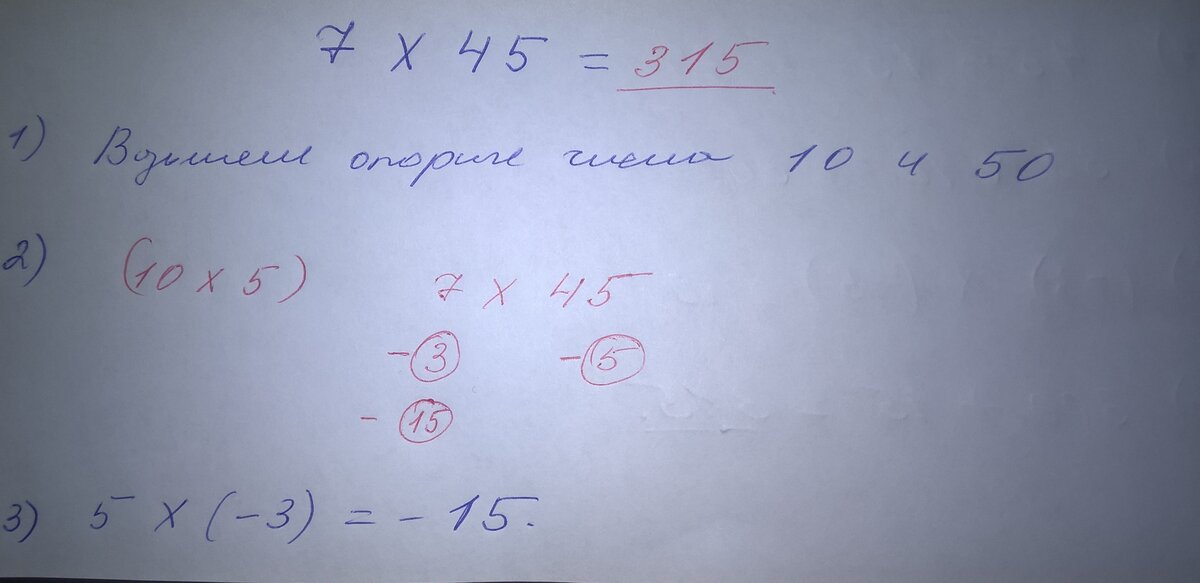 7 x 45 = 315
1) Возьмем опорные числа 10 и 50
2) (10 x 5) 7 x 45
- 3 - 5
- 15
3) 5 x (-3) = - 15.